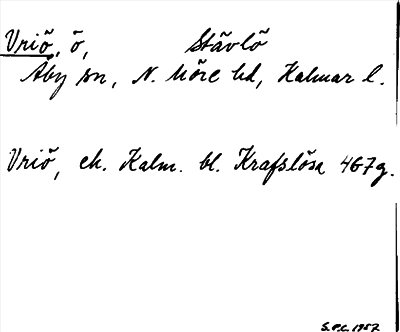 Vriö, ö, Stävlö
Åby sn, N. Möre hd, Kalmar l.
Vriö, ek. Kalm. bl. Krafslösa 467g.
S.P.C. 1957